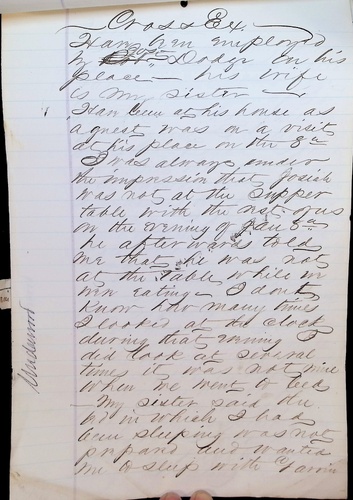 Cross Ex.
Have been employed
by Doder on his
place - his wife
is my sister -
Have been at his house as
a guest was on a visit
at his place on the 3rd
I was always under
the impression that Josiah
was not at the supper
table with the rest of us
on the evening of Jan 3rd
he afterwards told
me that he was not
at the table while we
were eating - I don't
know how many times
I looked at the clock
during that evening I
did look at several
times it was not nine
when we went to bed
My sister said the
bed in which I had
been sleeping was not
prepared and wanted
me to sleep with
Underwood